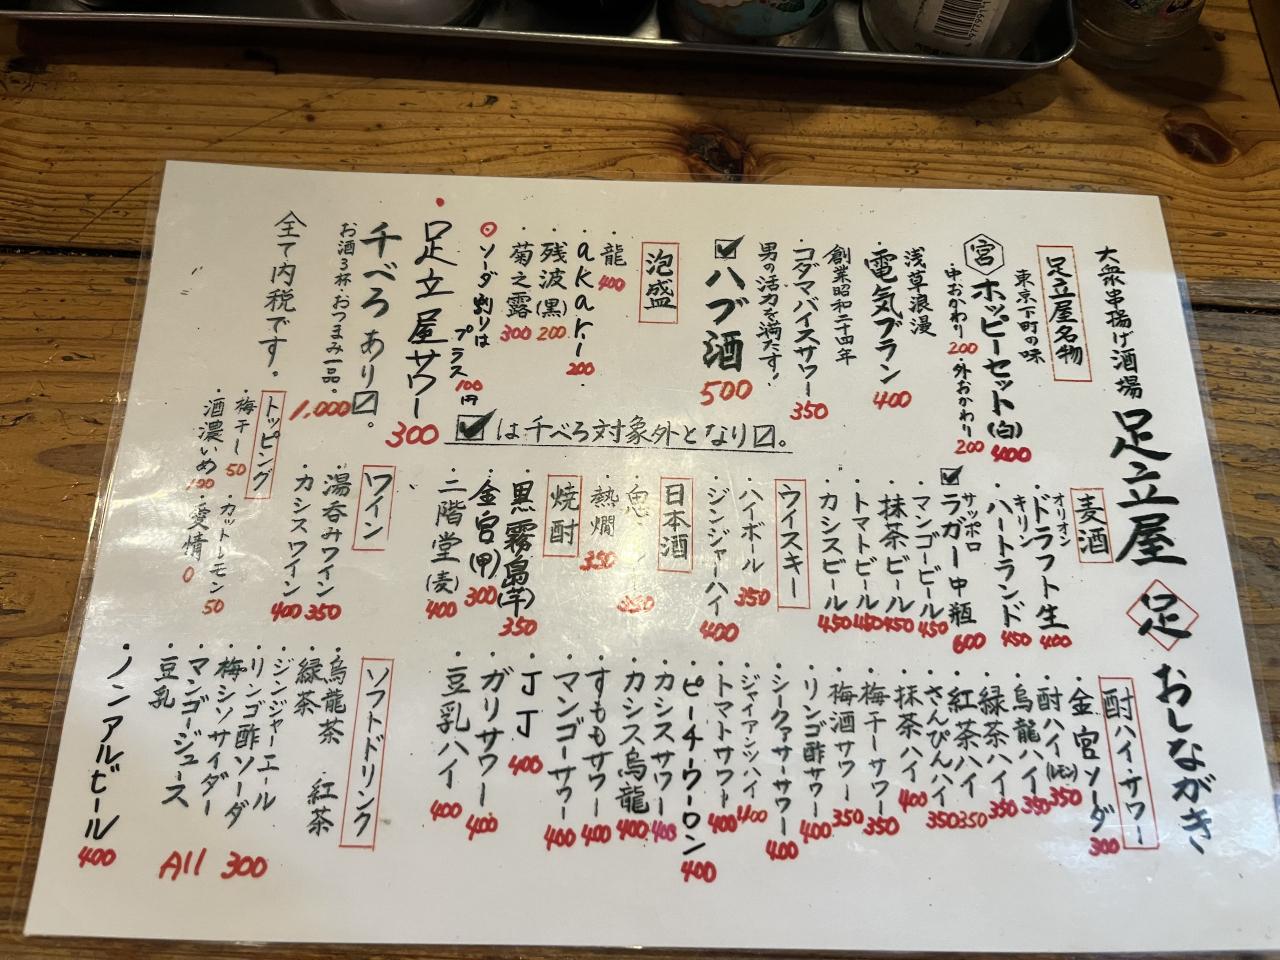 大衆串揚げ酒場 足立屋 足 おしながき
足立屋名物
東京下町の味
宮 ホッピーセット(白) 400
・中おかわり 200 ・外おかわり 200
浅草浪漫
・電気ブラン 400
創業昭和二十四年
・コダマバイスサワー 350
男の活力を満たす!
☑ハブ酒 500
泡盛
・龍 400
・akari 200
・残波(黒) 200
・菊之露 300
◎ソーダ割りはプラス100円
・足立屋サワー 300
千べろあり〼。
お酒3杯・おつまみ一品・1,000
全て内税です。
☑は千べろ対象外となり〼。
麦酒
オリオン
・ドラフト生 400
キリン
・ハートランド 450
サッポロ
☑・ラガー中瓶 600
・マンゴービール 450
・抹茶ビール 450
・トマトビール 450
・カシスビール 450
ウイスキー
・ハイボール 350
・ジンジャーハイ 400
日本酒
350
・熱燗 350
焼酎
・黒霧島(芋) 350
・金宮(甲) 300
・二階堂(麦) 400
ワイン
・湯呑みワイン 350
・カシスワイン 400
トッピング
・梅干し 50 ・カットレモン 50
・酒濃いめ 100 ・愛情 0
酎ハイ・サワー
・金宮ソーダ 300
・酎ハイ(レモン) 350
・烏龍ハイ 350
・緑茶ハイ 350
・紅茶ハイ 350
・さんぴんハイ 350
・抹茶ハイ 400
・梅干ーサワー 350
・梅酒サワー 350
・リンゴ酢サワー 400
・シークァサーサワー 400
・ジャイアンツハイ 400
・トマトサワー 400
・ピーチウーロン 400
・カシスサワー 400
・カシス烏龍 400
・すももサワー 400
・マンゴーサワー 400
・JJ 400
・ガリサワー 400
・豆乳ハイ 400
ソフトドリンク
・烏龍茶 紅茶
・緑茶
・ジンジャーエール
・リンゴ酢ソーダ
・梅シソサイダー
・マンゴージュース
・豆乳
All 300
・ノンアルビール 400